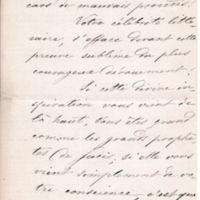 cas de mauvais procédés.
Votre célébrité litté-
raire, s'efface devant cette
preuve sublime du plus
courageux dévouement.
Si cette divine in-
spiration vous vient de
là haut, vous êtes grand
comme les grands prophè-
tes de jadis, si elle vous
vient simplement de vo-
tre conscience, c'est que